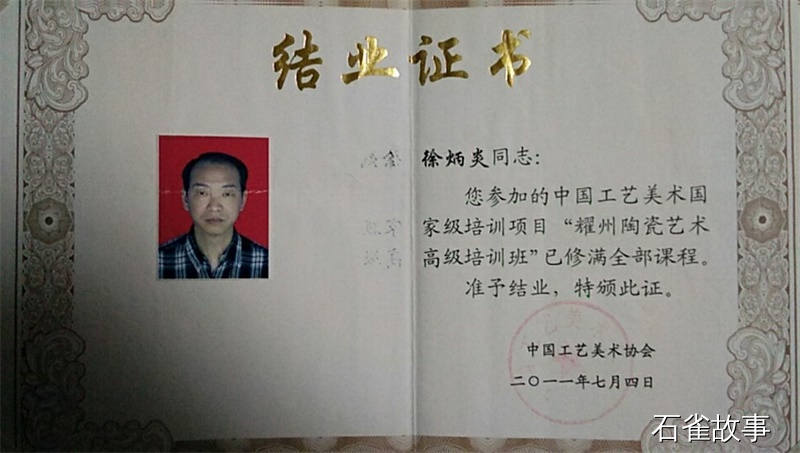 结业证书
徐炳炎同志：
您参加的中国工艺美术国
家级培训项目“耀州陶瓷艺术
高级培训班”已修满全部课程。
准予结业，特颁此证。
中国工艺美术协会
二〇一一年七月四日
石雀故事